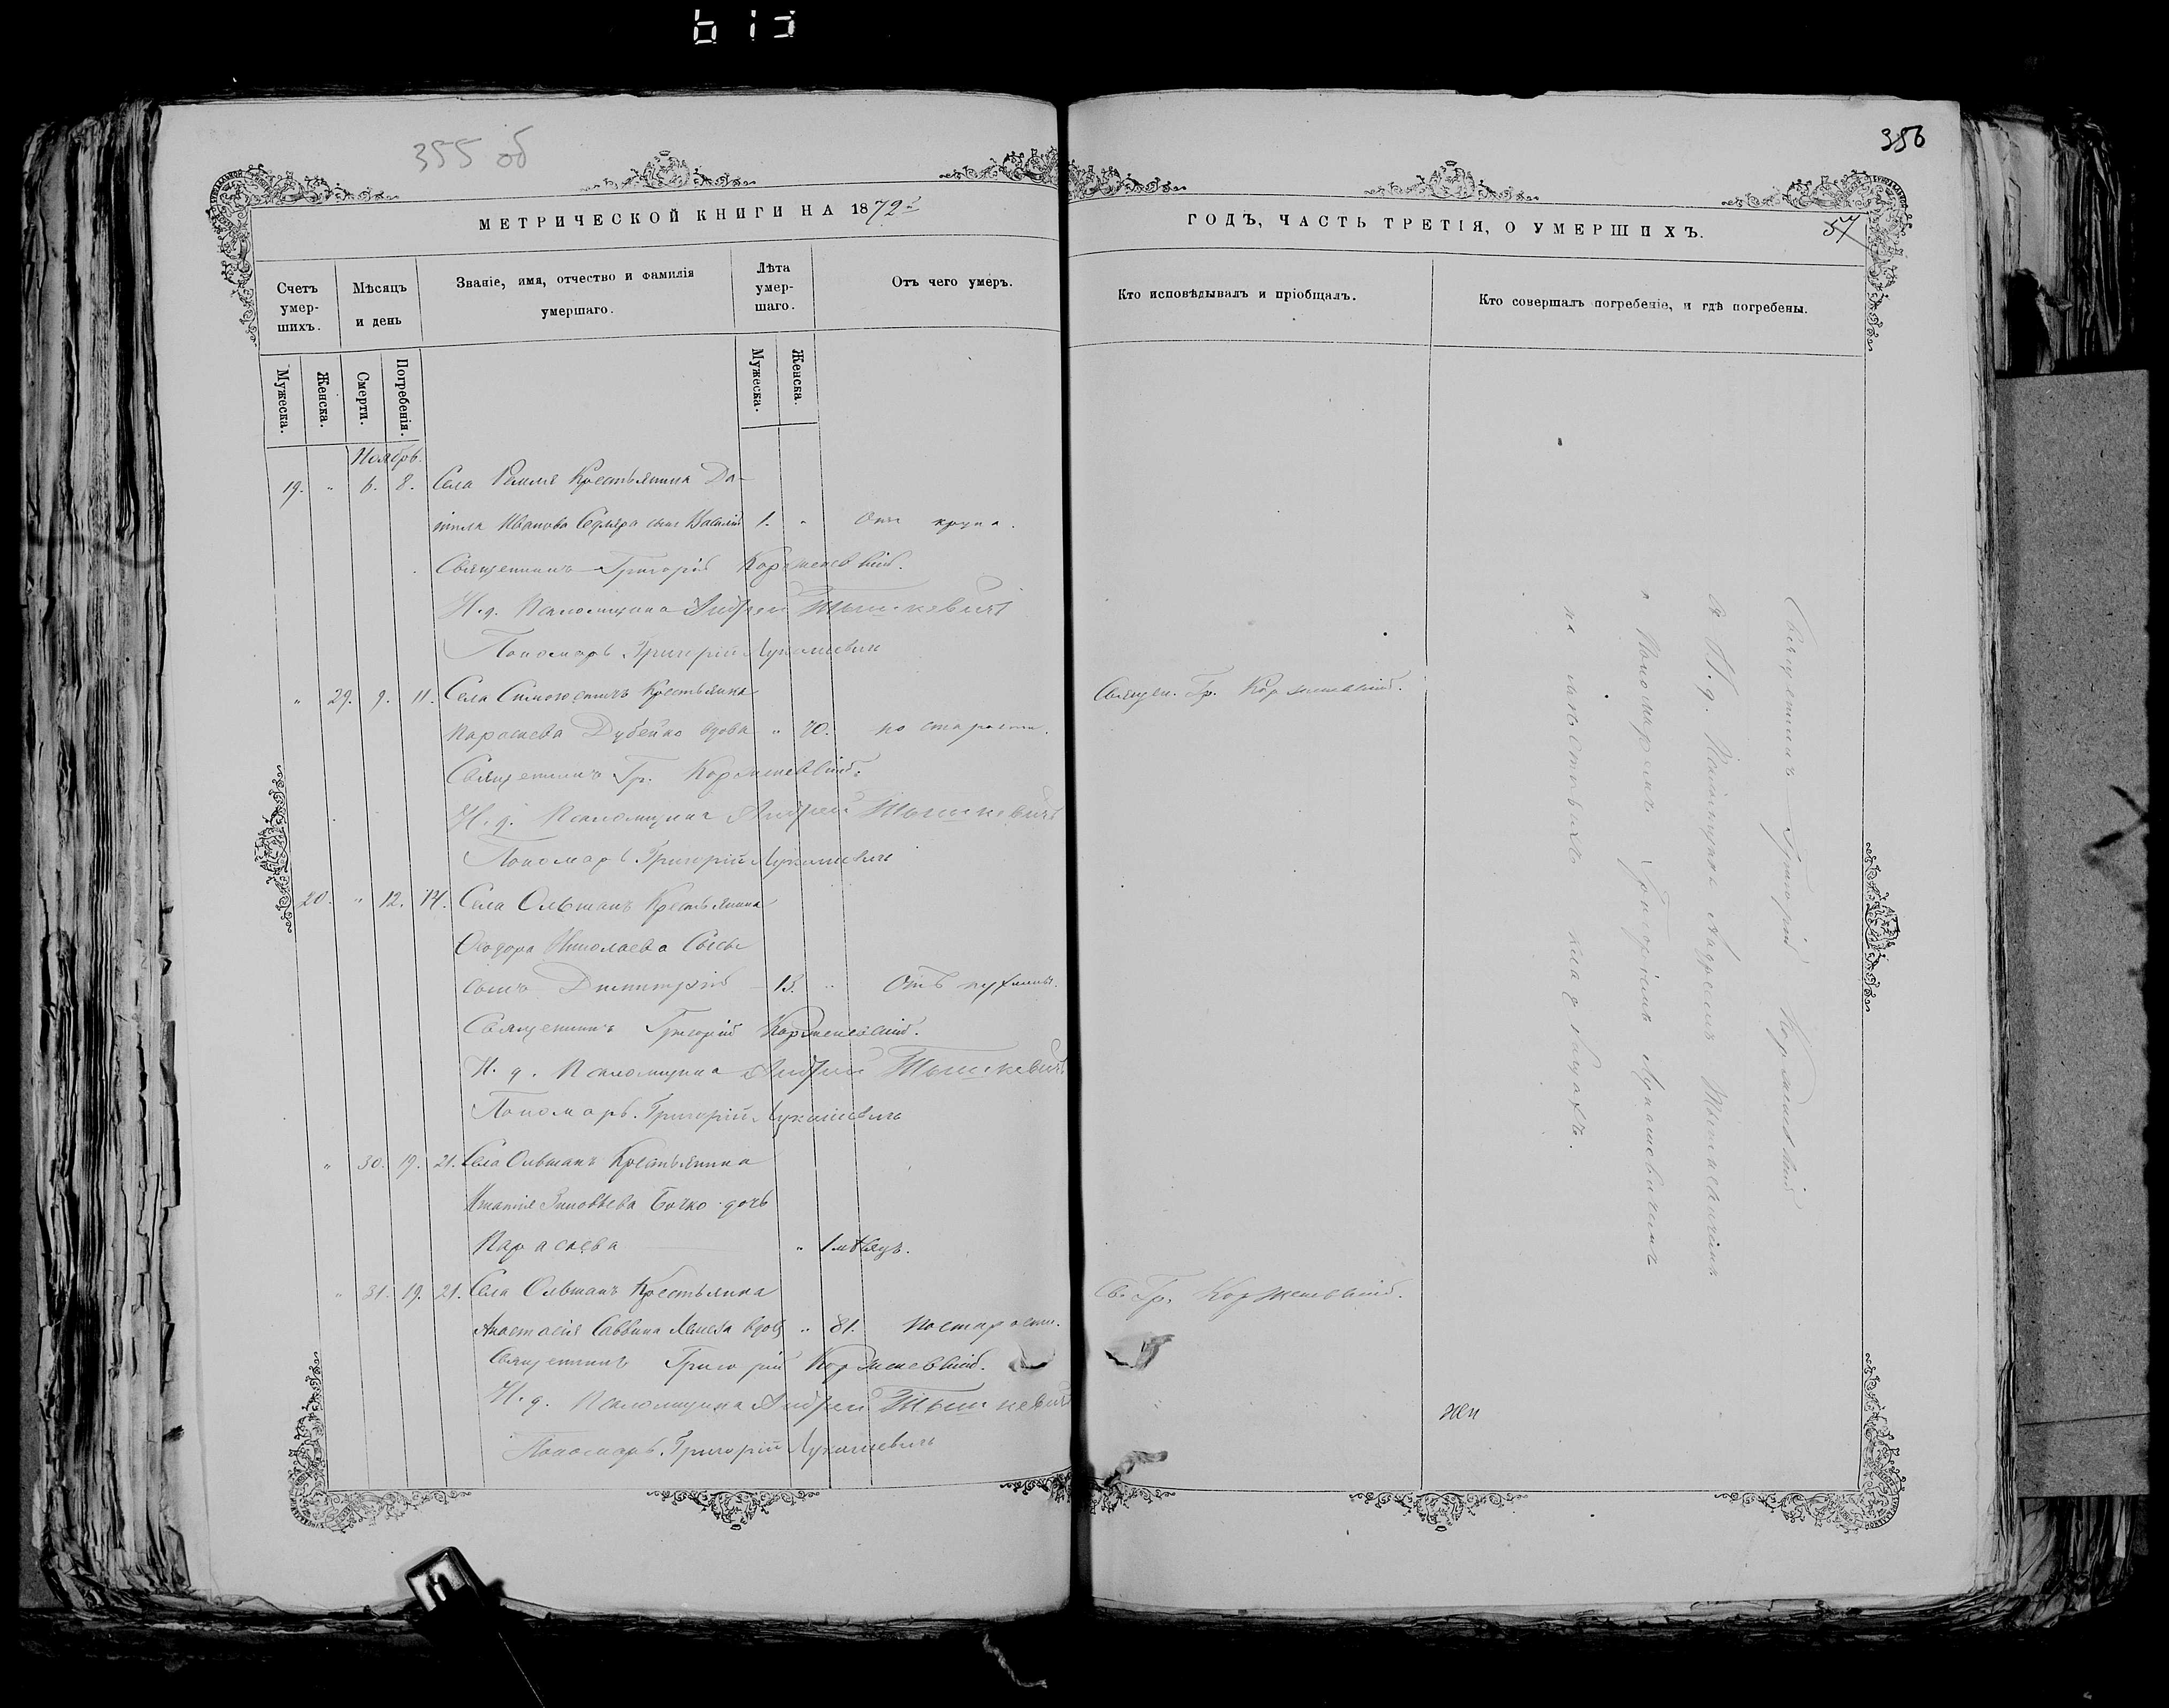 355 об
МЕТРИЧЕСКОЙ КНИГИ НА 1872й
Счетъ умер-шихъ.
Мѣсяцъ и день
Званіе, имя, отчество и фамилія умершаго.
Лѣта умер-шаго.
Отъ чего умеръ.
Мужеска.
Женска.
Смерти.
Погребенія.
Мужеска.
Женска.
Ноябрь.
19. " 6. 8. Села Ремля Крестьянина Да-
нила Иванова сынъ Василій 1. " Отъ крупа.
Священникъ Григорій Корженевскій.
И. д. Псаломщика Андрей Тышкевичъ
Пономарь Григорій Лукашевичъ
" 29. 9. 11. Села Крестьянка
Параскева Дубейко вдова " 70. по старости.
Священникъ Гр. Корженевскій.
И. д. Псаломщика Андрей Тышкевичъ
Пономарь Григорій Лукашевичъ
20. " 12. 14. Села Ольманъ Крестьянина
Ѳеодора Николаева
сынъ Димитрій 13. " Отъ
Священникъ Григорій Корженевскій.
И. д. Псаломщика Андрей Тышкевичъ
Пономарь Григорій Лукашевичъ
" 30. 19. 21. Села Ольманъ Крестьянина
Игнатія Зиновьева Бочко дочь
Параскева " 1 мѣсяцъ.
" 31. 19. 21. Села Ольманъ Крестьянка
Анастасія Саввина вдова " 81. По старости.
Священникъ Григорій Корженевскій.
И. д. Псаломщика Андрей Тышкевичъ
Пономарь Григорій Лукашевичъ
356
57
ГОДЪ, ЧАСТЬ ТРЕТІЯ, О УМЕРШИХЪ.
Кто исповѣдывалъ и пріобщалъ.
Кто совершалъ погребеніе, и гдѣ погребены.
Священ. Гр. Корженевскій.
Св. Гр. Корженевскій.
Священникъ Григорій Корженевскій
съ И. д. Псаломщика Андреемъ Тышкевичемъ
и Пономаремъ Григоріемъ Лукашевичемъ
на мѣстныхъ кладбищахъ.